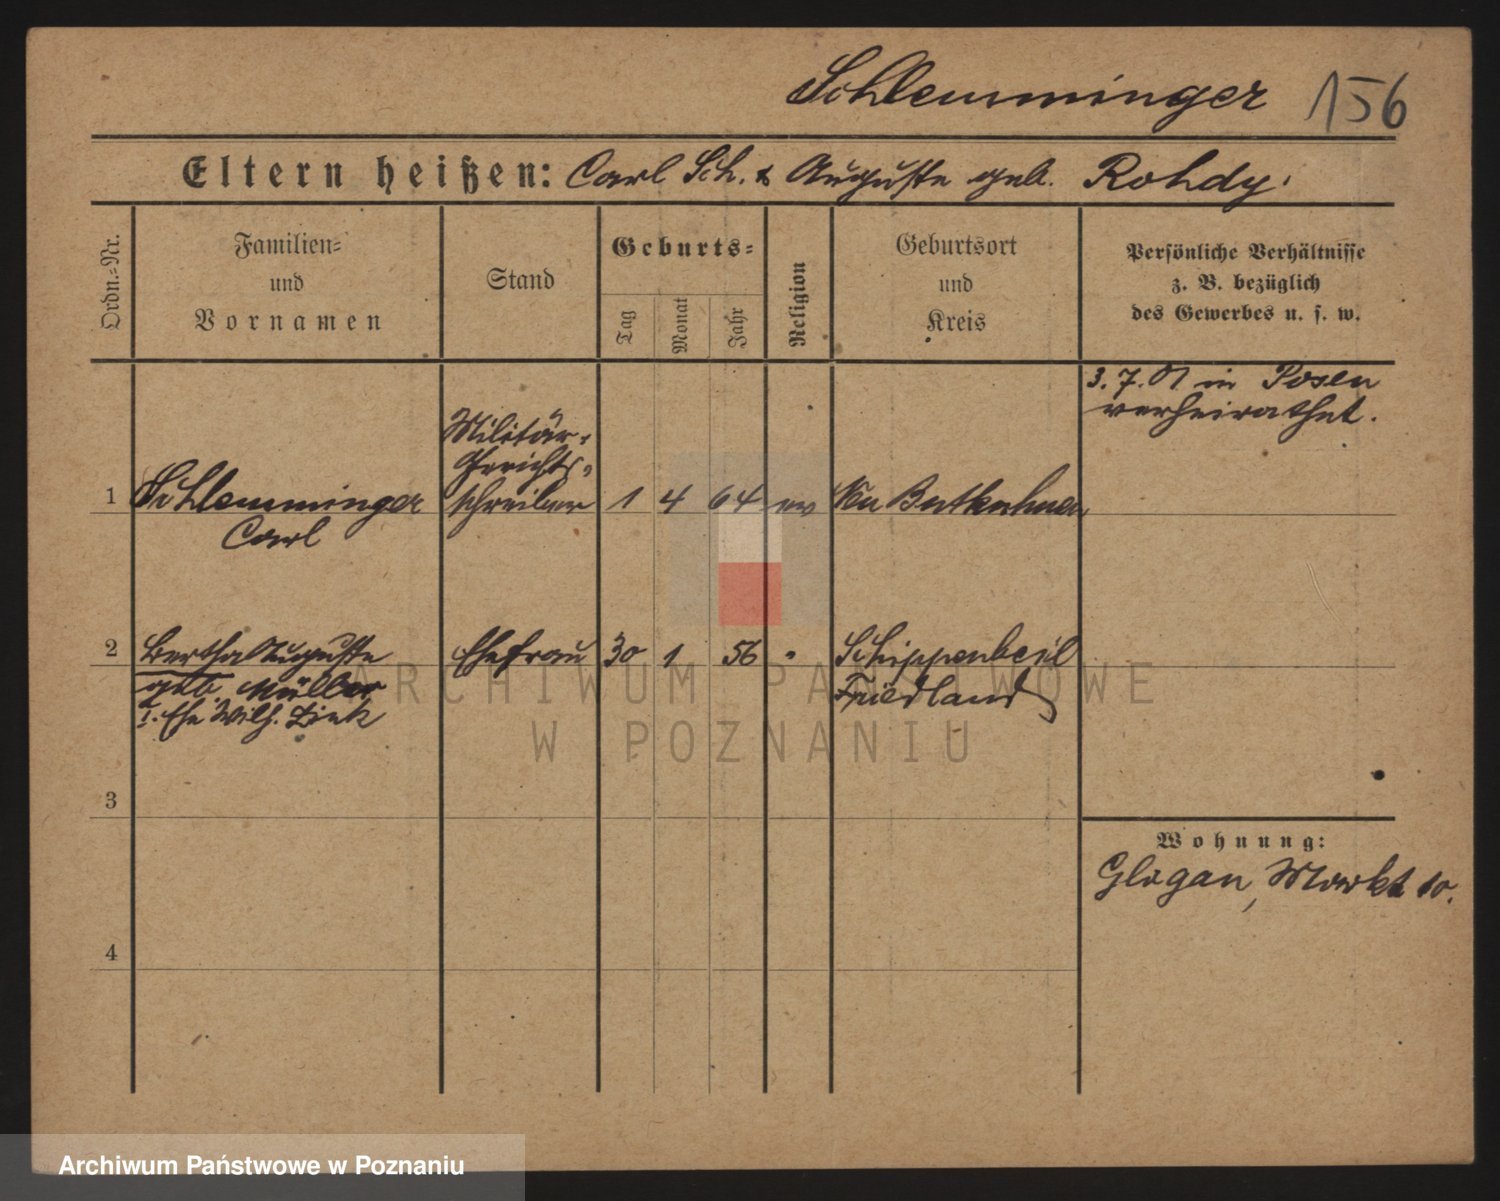 Schlemminger 156
Eltern heißen: Carl Sch. & Auguste geb. Rohdy.
Ordn.-Nr.
Familien-
und
Vornamen
Stand
Geburts-
Tag
Monat
Jahr
Religion
Geburtsort
und
Kreis
Persönliche Verhältnisse
z. B. bezüglich
des Gewerbes u. s. w.
3.7.01 in Posen
verheirathet.
Militär-
Gerichts-
1 Schlemminger schreiber 1 4 64 ev
Carl
2 Bertha Auguste Ehefrau 30 1 56 " Schippenbeil
geb. Müller Friedland
I. Ehe Wilh.
3
Wohnung:
Glogau, Markt 10.
4
ARCHIWUM PAŃSTWOWE
W POZNANIU
Archiwum Państwowe w Poznaniu